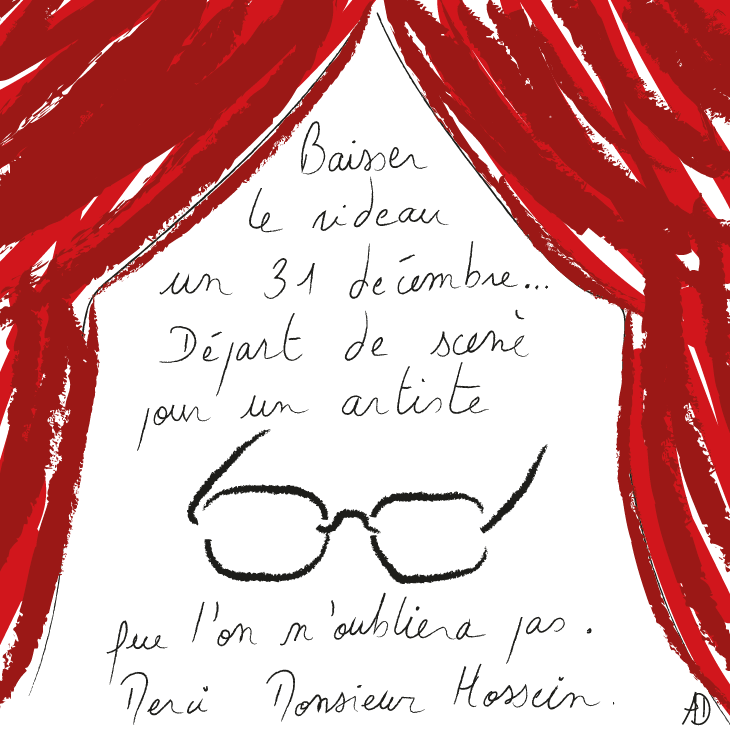 Baisser
le rideau
un 31 décembre...
Départ de scenè
pour un artiste
que l'on n'oubliera pas.
Merci Monsieur Hossein.
AD